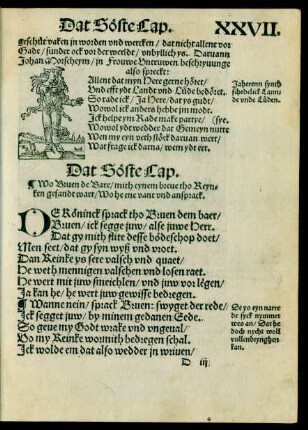 Dat Söste Cap. XXVII.
geschüt vaken in worden vnd wercken / dat nicht allene vor
Gade / sunder ock vor der werldt / vnbyllych ys. Daruann
Johan Morscheym / jn Frouwe Vntruwen beschryuunge
also spreckt:
Allent dat myn Here gerne höret /
Vnd efft ydt Landt vnd Lüde bedöret /
So rade ick / Ja Here / dat ys gudt /
Wowol ick anders hebbe jm mode.
Ick helpe ym Rade make partye / (sye.
Wowol ydt wedder dat Gemeyn nutte
Wen my eyn wech flöch daruan wert /
Wat frage ick darna / wem ydt ert.
Jaherrnn synth
schedelick Lann
de vnde Lüden.
Dat Söste Cap.
¶ Wo Bruen de Bare / mith eynem breue tho Reyn-
ken gesandt wart / Wo he ene vant vnd ansprack.
DE Köninck sprack tho Bruen dem baer /
Bruen / ick segge juw / alse juwe Herr.
Dat gy mith flite desse bödeschop doet /
Men seet / dat gy syn wyß vnd woet.
Dan Reinke ys sere valsch vnd quaet /
He weth mennigen valschen vnd losen raet.
He wert mit juw smeichlen / vnd juw vör legen /
Ja kan he / he wert juw gewisse bedregen.
¶ Wanne nein / sprack Bruen: swyget der rede /
Ick segget juw / by minem gedanen Eede.
So geue my Godt wrake vnd vngeual /
Bo my Reinke wormith bedregen schal.
Ick wolde em dat also wedder in wriuen /
De ys eyn narre
de syck nymmer
wes an / Dat he
doch nycht woll
vullenbrynghen
kan.
D iij